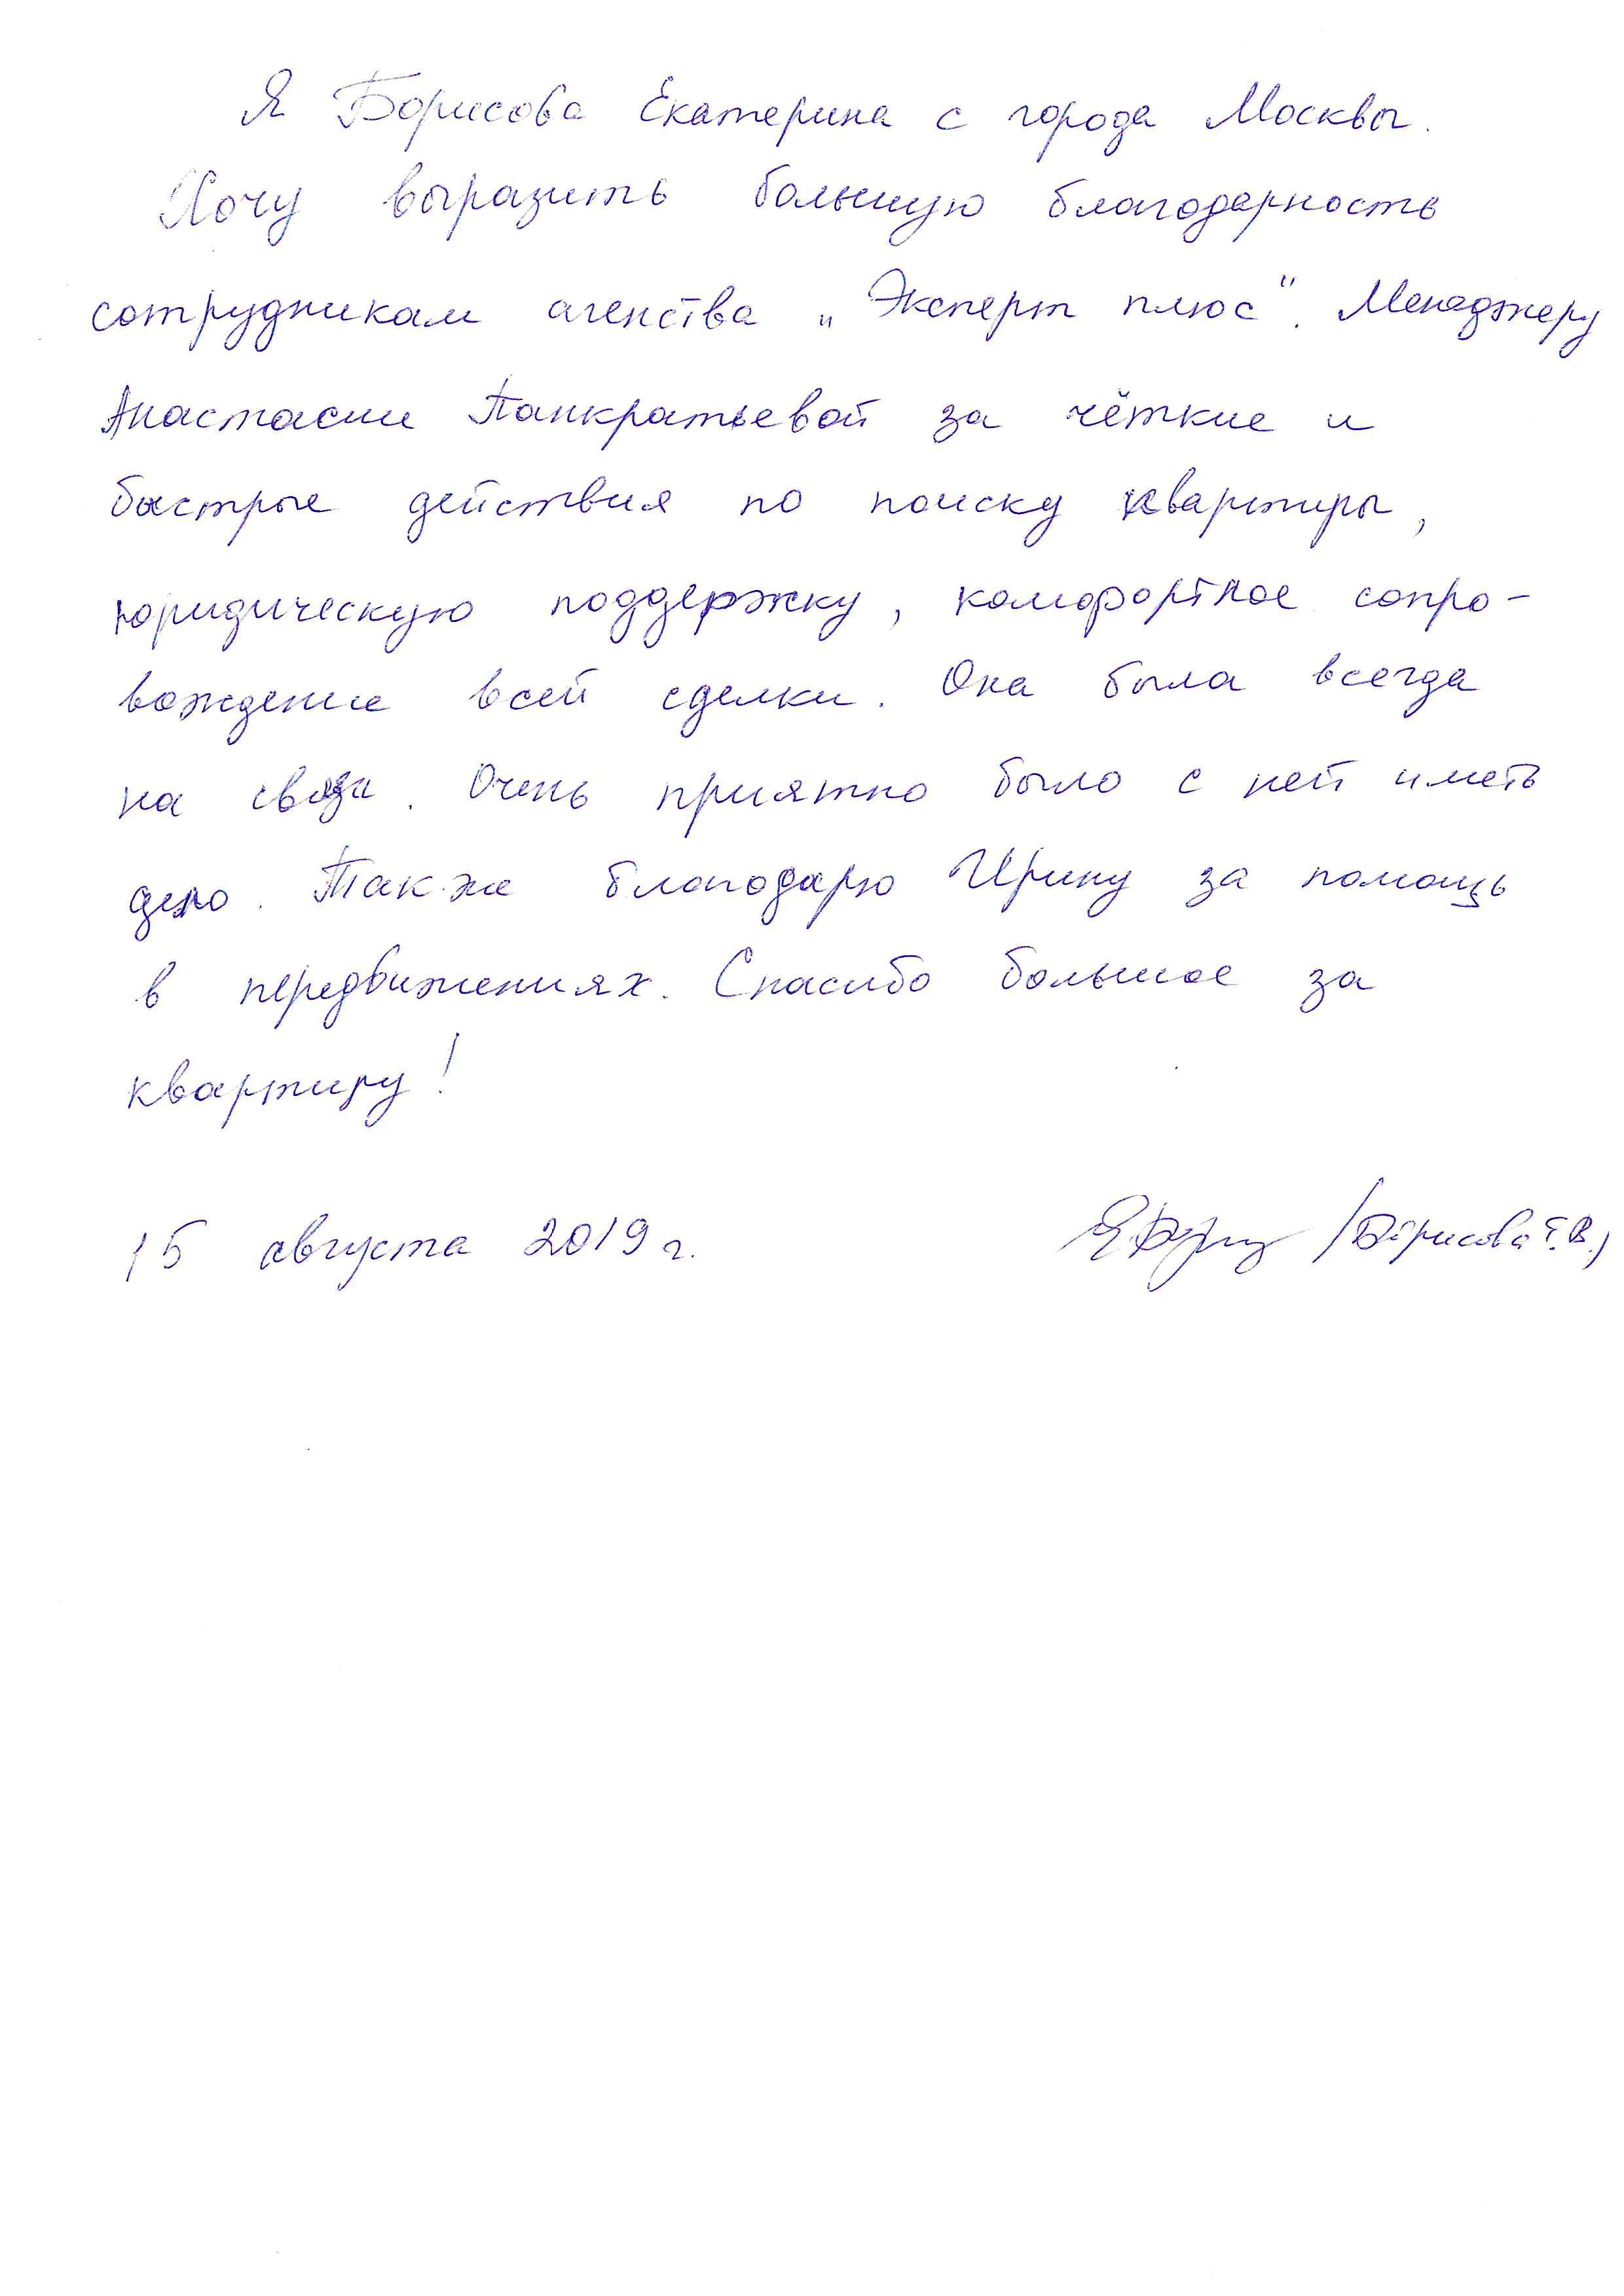 Я Борисова Екатерина с города Москвы.
Хочу выразить большую благодарность
сотрудникам агенства „Эксперт плюс". Менеджеру
Анастасии Панкратьевой за чёткие и
быстрые действия по поиску квартиры,
юридическую поддержку, комфортное сопро-
вождение всей сделки. Она была всегда
на связи. Очень приятно было с ней иметь
дело. Также благодарю Ирину за помощь
в передвижениях. Спасибо большое за
квартиру!
15 августа 2019 г. /Борисова Е.В./